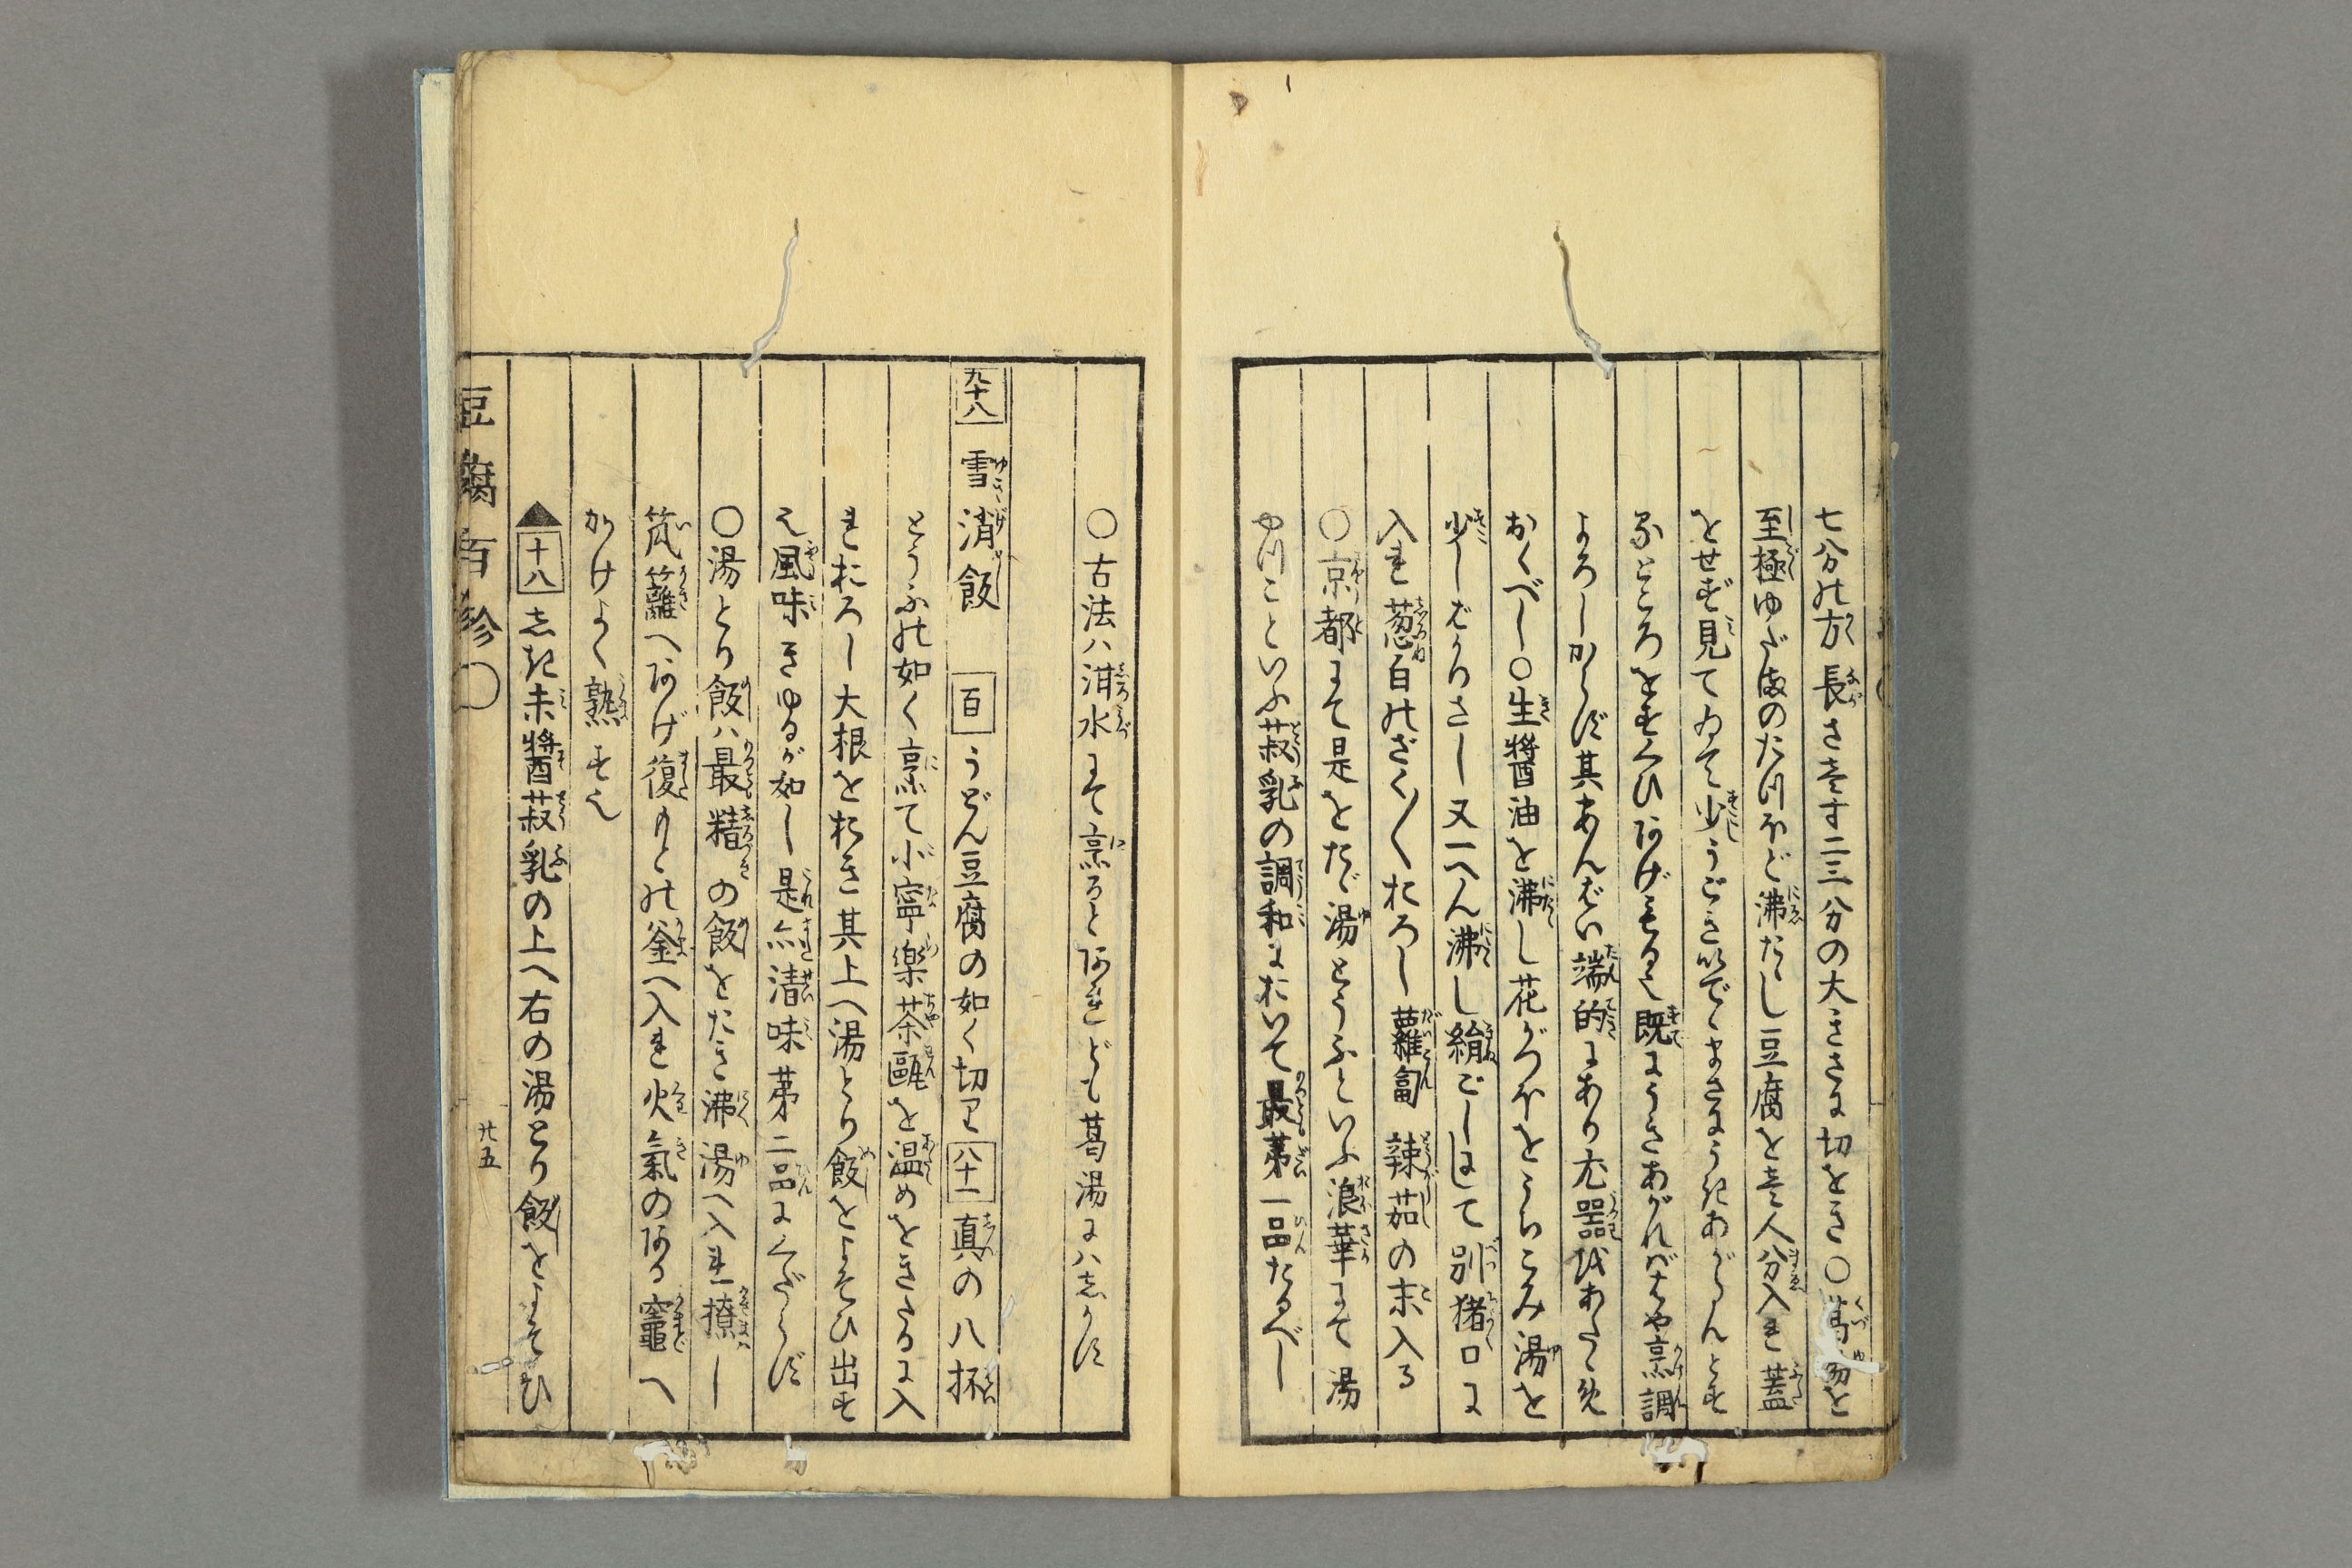 七分の方長さ壱寸二三分の大きさに切をき○葛湯を
至極ゆだまのたつほど沸たし豆腐を壱人分入れ蓋
をせず見てゐて少うごき出てまさにうきあがらんとす
るところをすくひあげもる也既にうきあがればはや烹調
よろしからず其あんばい端的にあり尤器もあたゝめ
おくべし○生醤油を沸し花がつほをうちこみ湯を
少しばかりさし又一へん沸し絹ごしにして別猪口に
入れ葱白のざく〳〵おろし蘿蔔辣茄の末入る
○京都にて是をたゞ湯とうふといふ浪華にて湯
やつこといふ菽乳の調和において最第一品たるべし
○古法ハ泔水にて烹るとあれども葛湯にハしかず
九十八 雪消飯 百 うどん豆腐の如く切り 八十一 真の八杯
とうふの如く烹て小寧楽茶甌を温めをきさるに入
れおろし大根をおき其上へ湯とり飯をよそひ出す
也風味きゆるが如し是亦清味第二品にくだらず
○湯とり飯ハ最精の飯をたき沸湯へ入れ撩し
笊籬へあげ復もとの釜へ入れ火氣のある竈へ
かけよく熟す也
▲十八 しき未醤菽乳の上へ右の湯とり飯をよそひ
豆腐百珍○
廿五